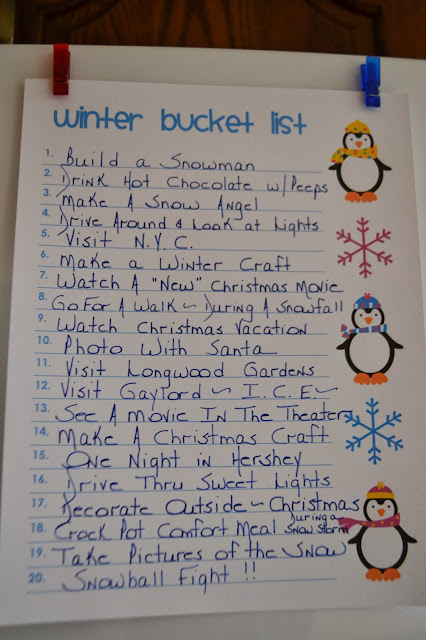 winter bucket list
1. Build a Snowman
2. Drink Hot Chocolate w/Peeps
3. Make A Snow Angel
4. Drive Around & Look at Lights
5. Visit N.Y.C.
6. Make a Winter Craft
7. Watch A "New" Christmas Movie
8. Go For A Walk ~ During A Snowfall
9. Watch Christmas Vacation
10. Photo With Santa
11. Visit Longwood Gardens
12. Visit Gaylord ~ I.C.E. ~
13. See A Movie In The Theater
14. Make A Christmas Craft
15. One Night in Hershey
16. Drive Thru Sweet Lights
17. Decorate Outside ~ Christmas
18. Crock Pot Comfort Meal During a Snow Storm
19. Take Pictures of the Snow
20. Snowball Fight !!